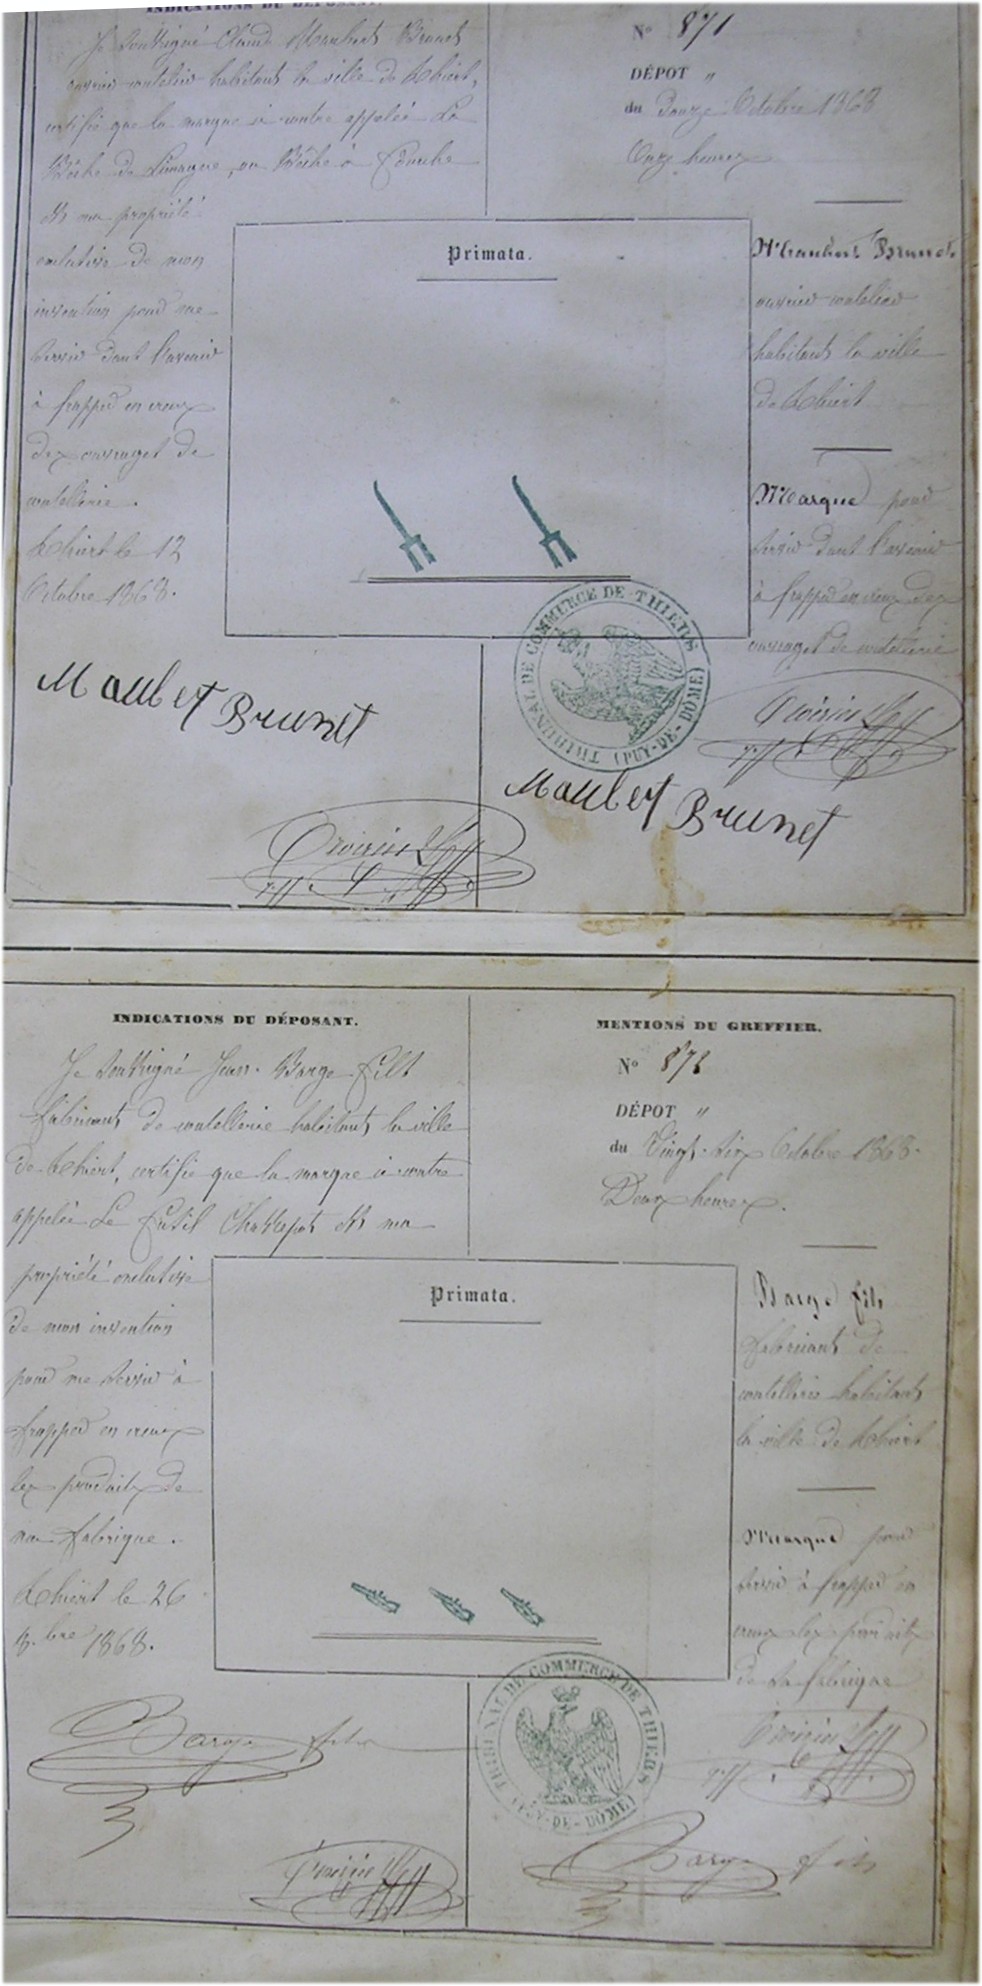 INDICATIONS DU DÉPOSANT.
Je soussigné Claude Maubert Brunet
ouvrier coutelier habitant la ville de Thiers,
certifie que la marque ci contre appelée La
Bêche de Limagne, ou Bêche à fourche
est ma propriété
exclusive de mon
invention pour me
servir dans l'avenir
à frapper en creux
des ouvrages de
coutellerie.
Thiers le 12
Octobre 1868.
Maubert Brunet
No 871
DÉPOT "
du Douze Octobre 1868
Onze heures
Primata.
Maubert Brunet
ouvrier coutelier
habitant la ville
de Thiers
Marque pour
servir dans l'avenir
à frapper en creux des
ouvrages de coutellerie
TRIBUNAL DE COMMERCE DE THIERS
(PUY-DE-DÔME)
Maubert Brunet
INDICATIONS DU DÉPOSANT.
Je soussigné Jean Barge fils
fabricant de coutellerie habitant la ville
de Thiers, certifie que la marque ci contre
appelée Le Fusil Chassepot est ma
propriété exclusive
de mon invention
pour me servir à
frapper en creux
les produits de
ma fabrique.
Thiers le 26
8.bre 1868.
Barge fils
MENTIONS DU GREFFIER.
No
DÉPOT "
du Vingt-six Octobre 1868.
Deux heures.
Primata.
Barge fils
fabricant de
coutellerie habitant
la ville de Thiers
Marque pour
servir à frapper en
creux les produits
de sa fabrique
TRIBUNAL DE COMMERCE DE THIERS
(PUY-DE-DÔME)
Barge fils